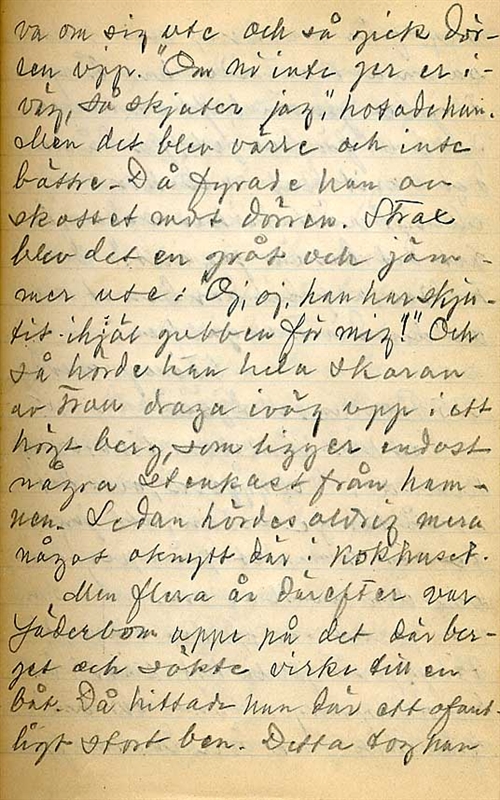 va om sig ute och så gick dör-
ren upp. "Om ni inte ger er i-
väg, så skjuter jag", hotade han.
Men det blev värre och inte
bättre. Då fyrade han av
skottet mot dörren. Strax
blev det en gråt och jäm-
mer ute: "Oj, oj, han har skju-
tit ihjäl gubben för mig!" Och
så hörde han hela skaran
av Troll draga iväg upp i ett
högt berg, som ligger endast
några stenkast från ham-
nen. Sedan hördes aldrig mera
något oknytt där i kokhuset.
Men flera år därefter var
Söderbom uppe på det där ber-
get och sökte virke till en
båt. Då hittade han där ett ofant-
ligt stort ben. Detta tog han